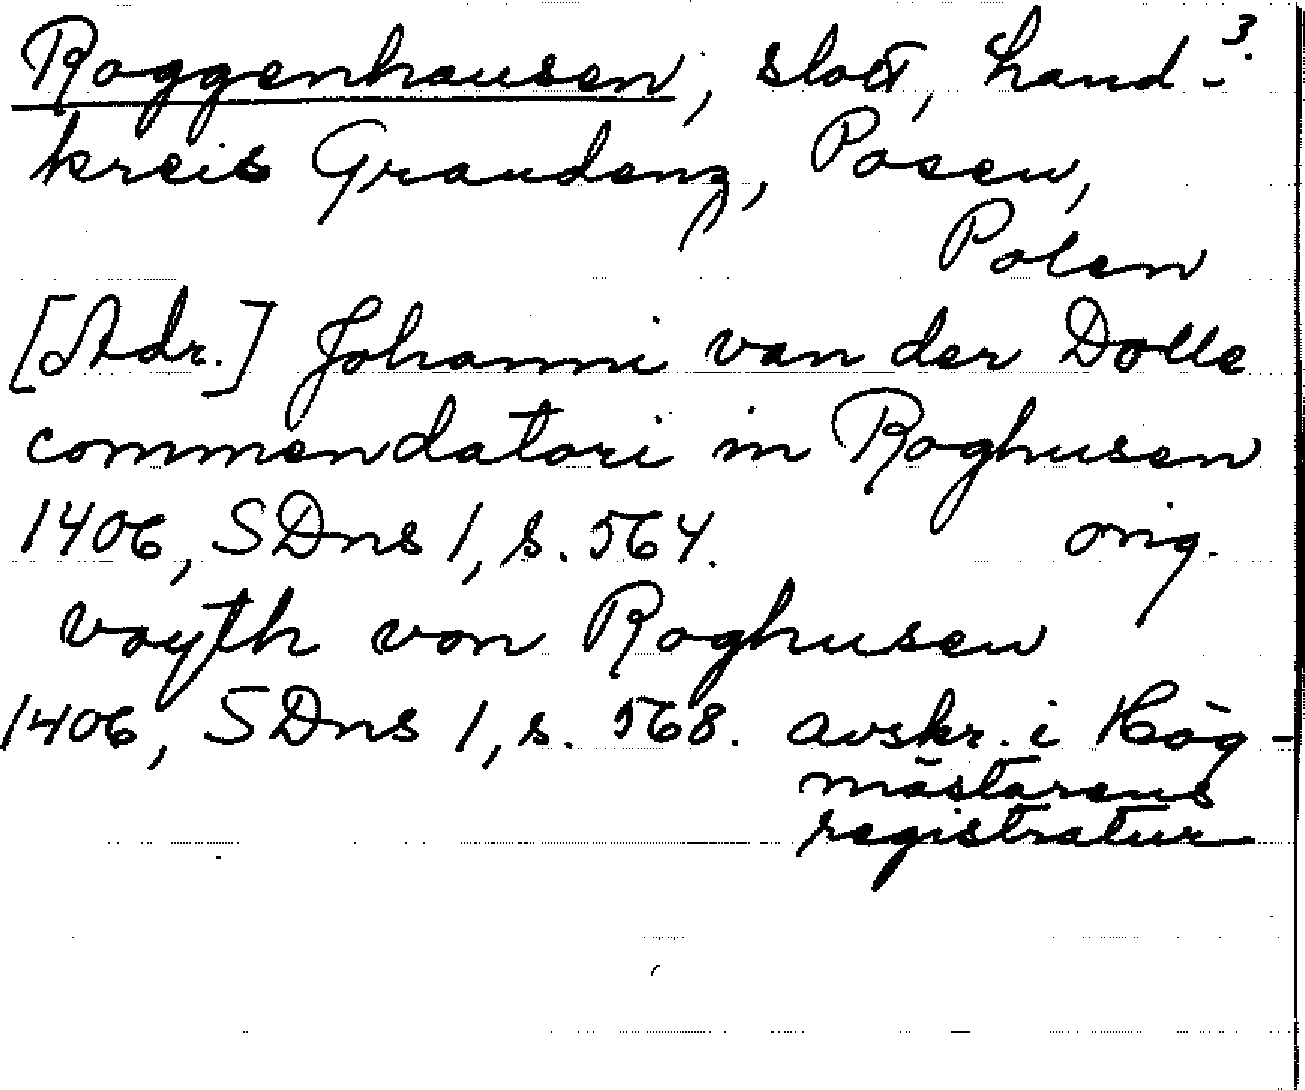 Roggenhausen, slott, Land- 3.
kreis Graudenz, Posen,
Polen
[Adr.] Johanni van der Dolle
commendatori in Roghusen
1406, SDns 1, s. 564. orig.
voyth von Roghusen
1406, SDns 1, s. 568. avskr. i Hög-
mästarens
registratur